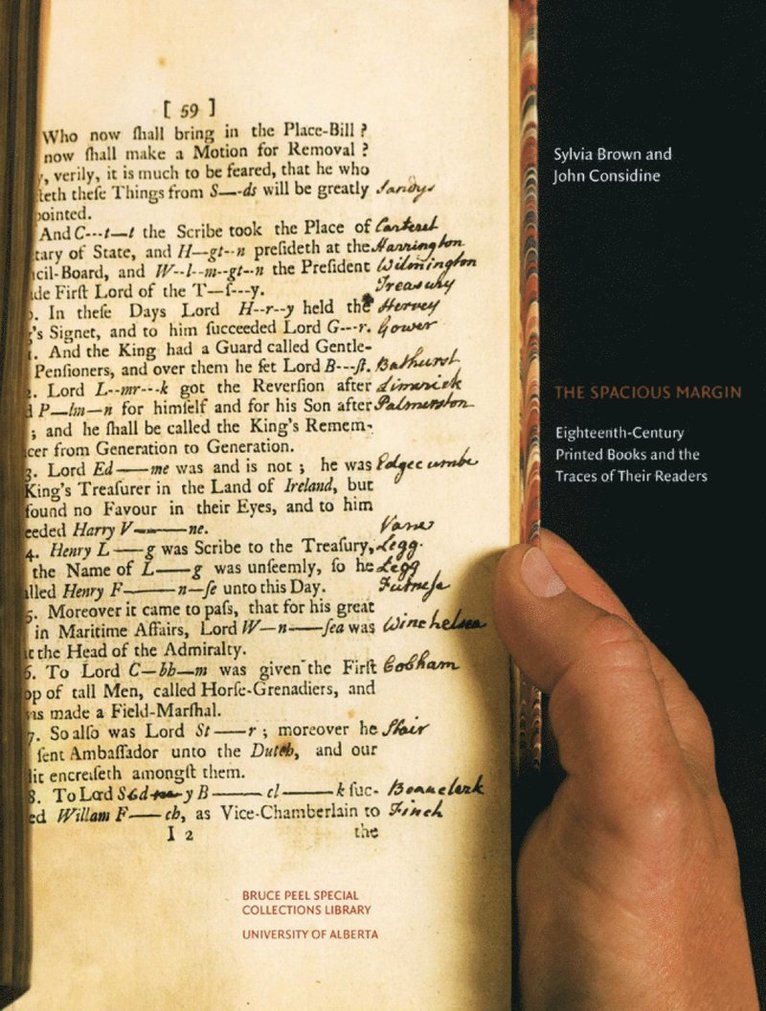 Sylvia Brown and
John Considine
THE SPACIOUS MARGIN
Eighteenth-Century
Printed Books and the
Traces of Their Readers
[ 59 ]
Who now ſhall bring in the Place-Bill ?
now ſhall make a Motion for Removal ?
, verily, it is much to be feared, that he who
leth theſe Things from S—-ds will be greatly Sandys
pointed.
And C---t—t the Scribe took the Place of Carteret
tary of State, and H—gt--n preſideth at the Harrington
cil-Board, and W--l--m--gt--n the Preſident Wilmington
de Firſt Lord of the T—ſ---y. Treasury
. In theſe Days Lord H--r--y held the Hervey
's Signet, and to him ſucceeded Lord G---r. Gower
. And the King had a Guard called Gentle-
Penſioners, and over them he ſet Lord B---ſt. Bathurst
2. Lord L--mr---k got the Reverſion after Limerick
P—lm—n for himſelf and for his Son after Palmerston
; and he ſhall be called the King's Remem-
cer from Generation to Generation.
3. Lord Ed——me was and is not ; he was Edgecumbe
King's Treaſurer in the Land of Ireland, but
found no Favour in their Eyes, and to him
eeded Harry V———ne. Vane
4. Henry L——g was Scribe to the Treaſury, Legg.
the Name of L——g was unſeemly, ſo he Legg
lled Henry F———n—ſe unto this Day. Furnese
5. Moreover it came to paſs, that for his great
in Maritime Affairs, Lord W—n——ſea was Winchelsea
t the Head of the Admiralty.
6. To Lord C—bb—m was given the Firſt Cobham
op of tall Men, called Horſe-Grenadiers, and
as made a Field-Marſhal.
7. So alſo was Lord St——r ; moreover he Stair
ſent Ambaſſador unto the Dutch, and our
dit encreaſeth amongſt them.
8. To Lord y B——— cl ———k ſuc- Beauclerk
ed Willam F—— ch, as Vice-Chamberlain to Finch
I 2 the
BRUCE PEEL SPECIAL
COLLECTIONS LIBRARY
UNIVERSITY OF ALBERTA